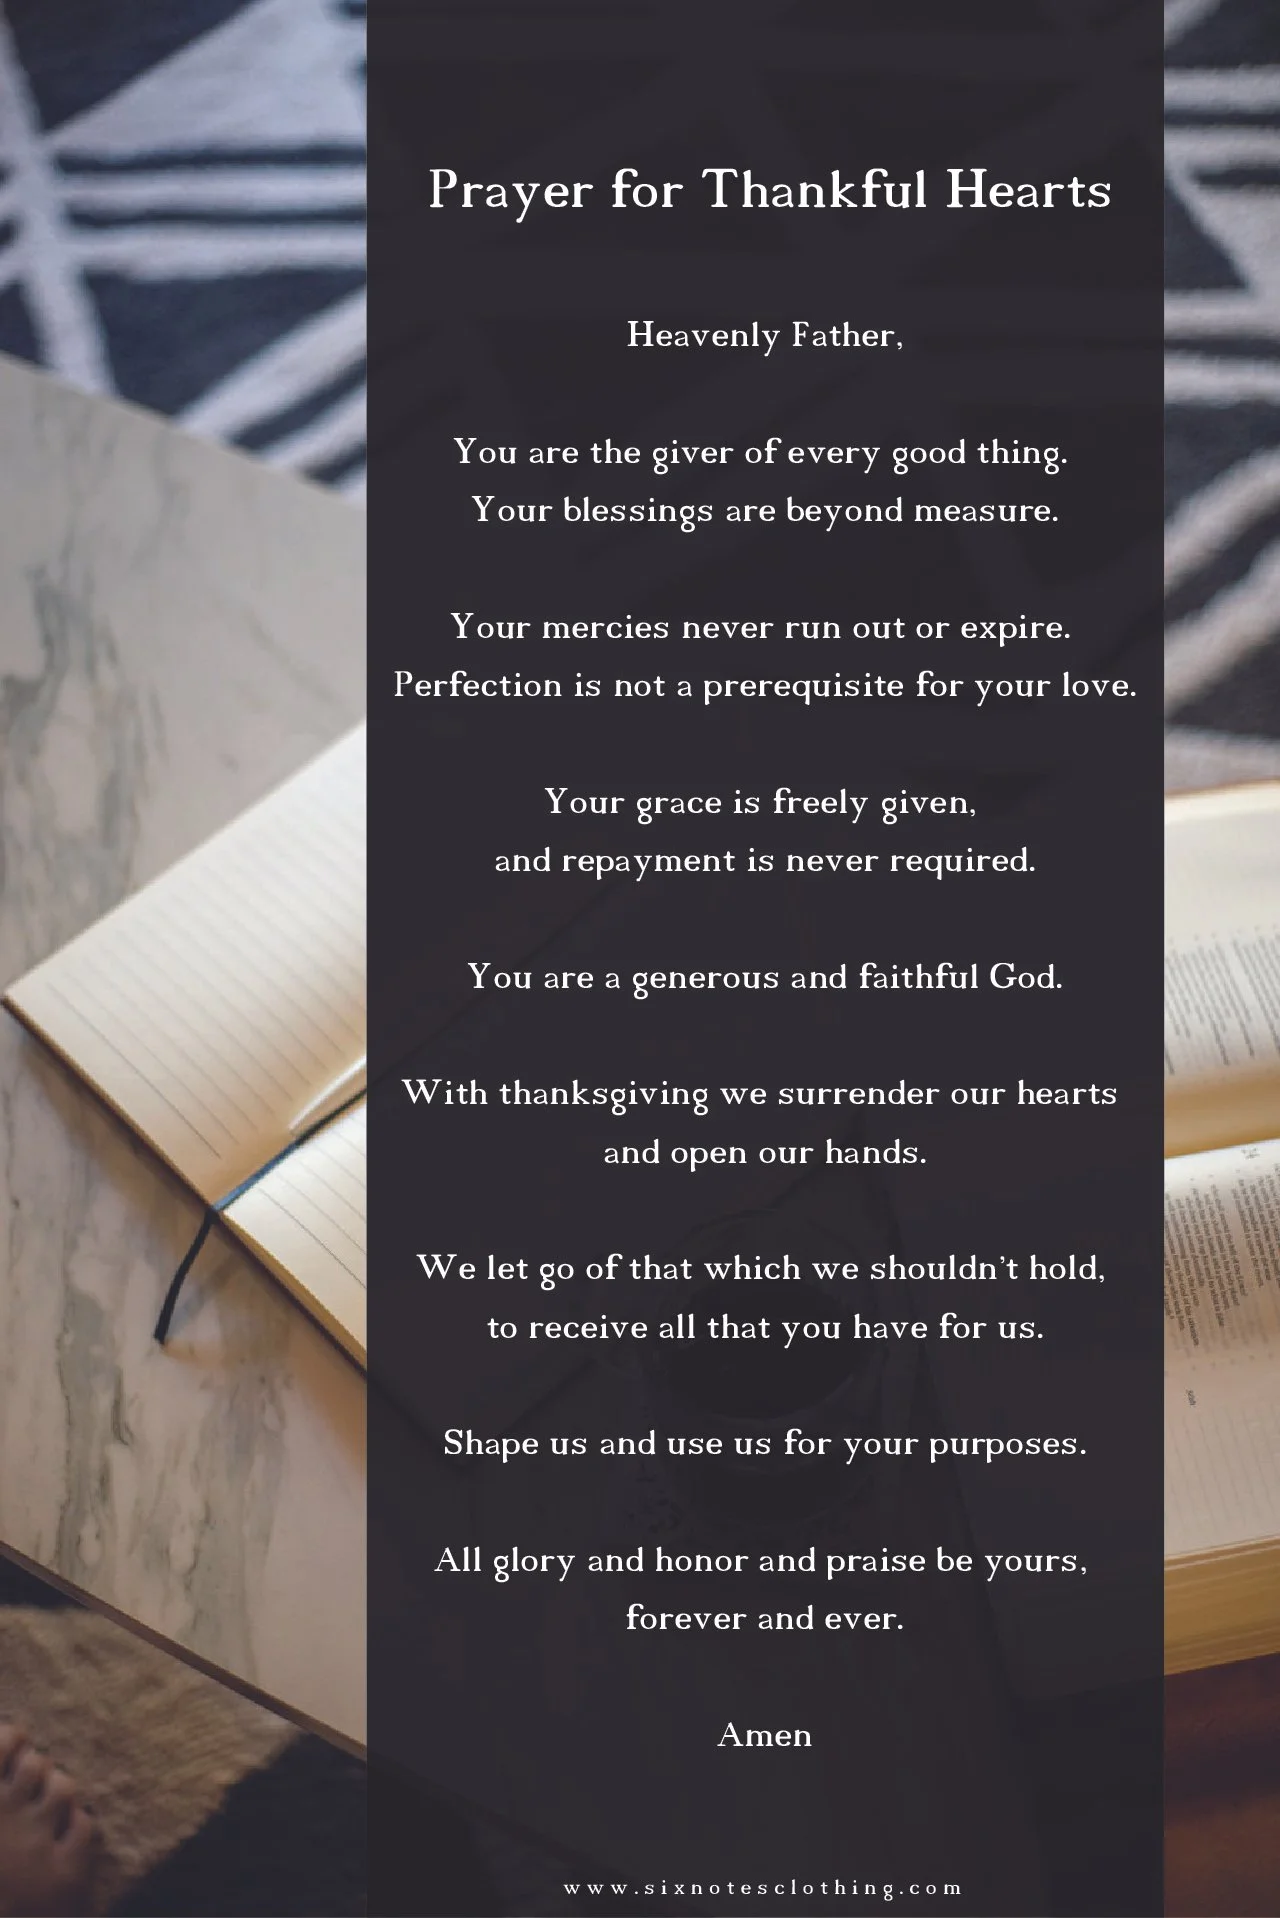 Prayer for Thankful Hearts
Heavenly Father,
You are the giver of every good thing.
Your blessings are beyond measure.
Your mercies never run out or expire.
Perfection is not a prerequisite for your love.
Your grace is freely given,
and repayment is never required.
You are a generous and faithful God.
With thanksgiving we surrender our hearts
and open our hands.
We let go of that which we shouldn't hold,
to receive all that you have for us.
Shape us and use us for your purposes.
All glory and honor and praise be yours,
forever and ever.
Amen
www.sixnotesclothing.com